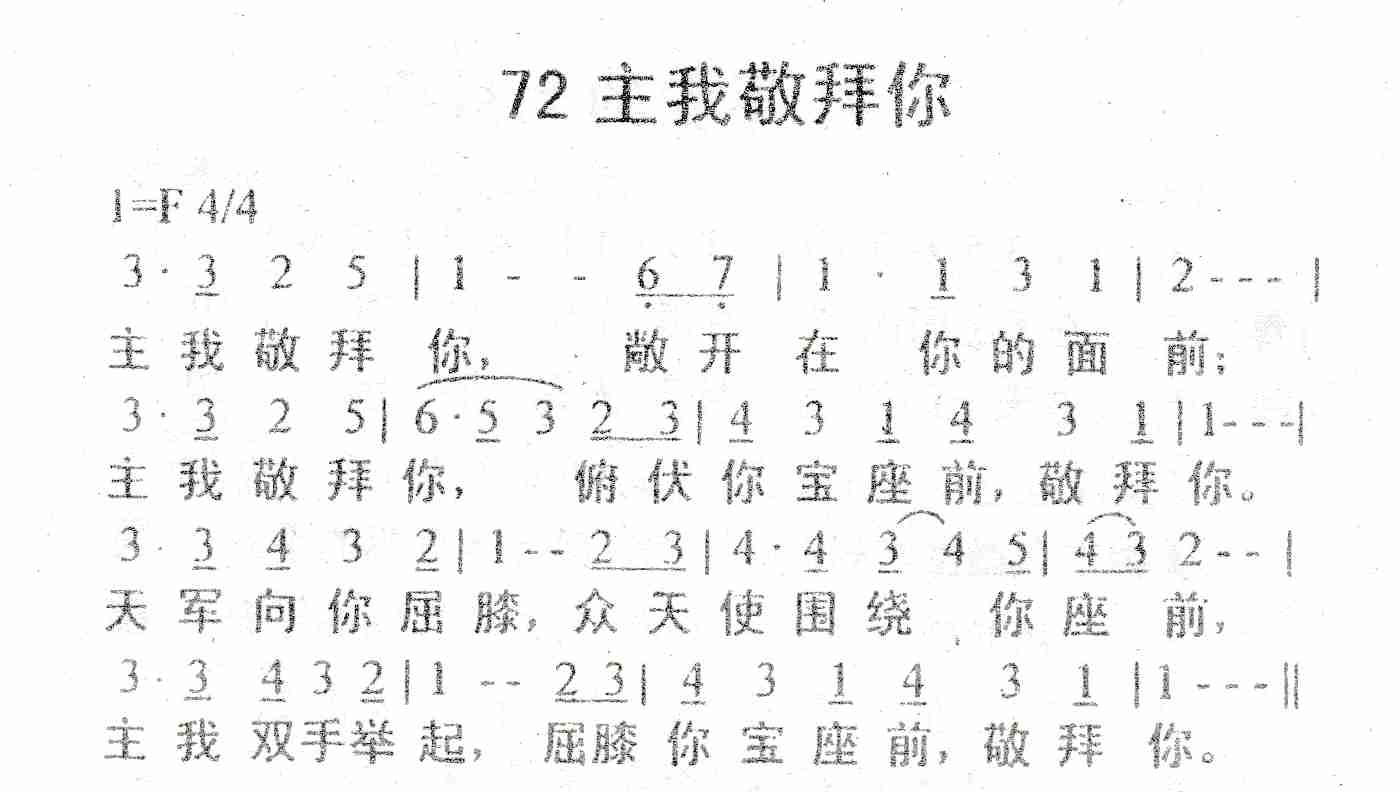 72 主我敬拜你
1=F 4/4
3 · 3 2 5 | 1 - - 6 7 | 1 · 1 3 1 | 2 - - - |
主我敬拜你， 敞开在 你的面 前；
3 · 3 2 5 | 6 · 5 3 2 3 | 4 3 1 4 3 1 | 1 - - - |
主我敬拜你， 俯伏你宝座前，敬拜你。
3 · 3 4 3 2 | 1 - - 2 3 | 4 · 4 3 4 5 | 4 3 2 - - |
天军向你屈膝，众天使围绕 你座 前，
3 · 3 4 3 2 | 1 - - 2 3 | 4 3 1 4 3 1 | 1 - - - ||
主我双手举起， 屈膝你宝座前，敬拜 你。